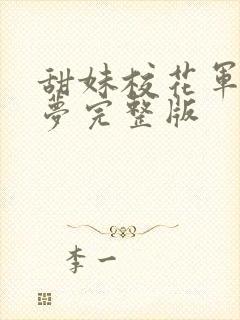 甜妹校花军
梦完整版
李一